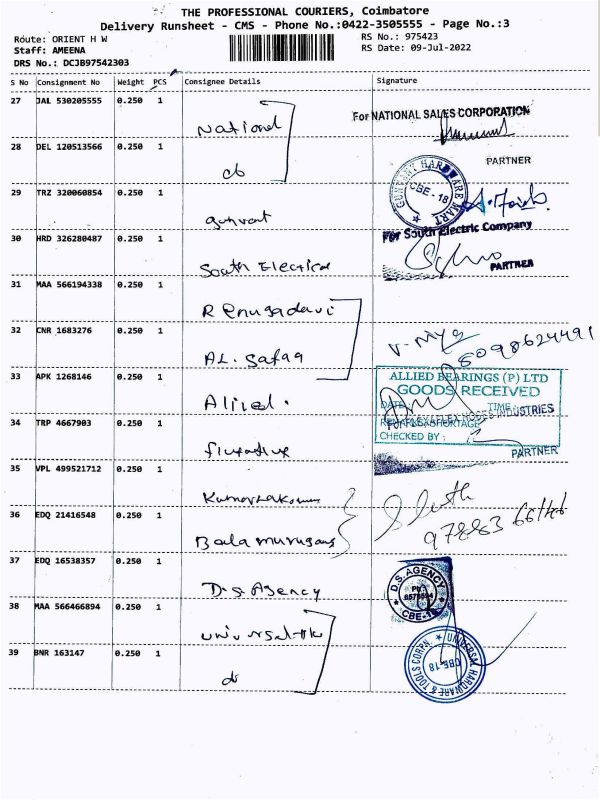 THE PROFESSIONAL COURIERS, Coimbatore
Delivery Runsheet - CMS - Phone No.:0422-3505555 - Page No.:3
Route: ORIENT H W
RS No.: 975423
Staff: AMEENA
RS Date: 09-Jul-2022
DRS No.: DCJB97542303
S No Consignment No Weight PCS Consignee Details Signature
27 JAL 530205555 0.250 1 National
For NATIONAL SALES CORPORATION
28 DEL 120513566 0.250 1 do
PARTNER
29 TRZ 320060854 0.250 1 gunvant
GUNVANT HARDWARE MART
CBE - 18
30 HRD 326280487 0.250 1 South Electrical
For South Electric Company
PARTNER
31 MAA 566194338 0.250 1 Renugadavi
32 CNR 1683276 0.250 1 AL. Safaa
33 APK 1268146 0.250 1 Alied.
ALLIED BEARINGS (P) LTD
GOODS RECEIVED
DATE: TIME:
INDUSTRIES
CHECKED BY :
34 TRP 4667903 0.250 1
PARTNER
35 VPL 499521712 0.250 1
36 EDQ 21416548 0.250 1 Balamurugans
37 EDQ 16538357 0.250 1 D.S. Agency
D.S. AGENCY
CBE-18
38 MAA 566466894 0.250 1
39 BNR 163147 0.250 1 do
UNIVERSAL HARDWARE & TOOLS CORPN.
CBE-18